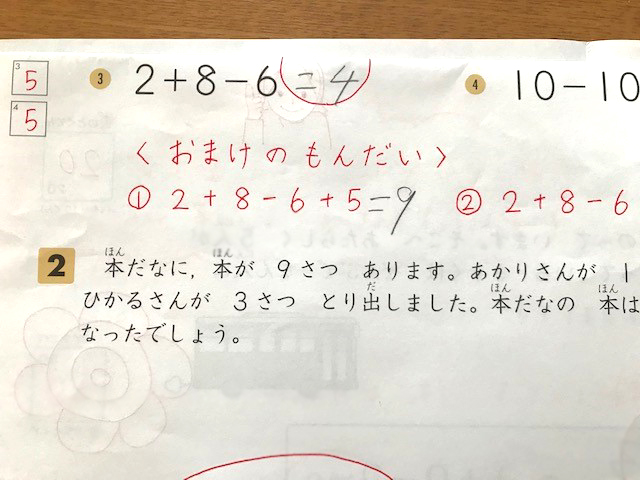 3 5
③ 2+8-6=4
④ 10-10
4 5
〈おまけのもんだい〉
① 2+8-6+5=9
② 2+8-6
2 本だなに,本が 9さつ あります。あかりさんが 1
ひかるさんが 3さつ とり出しました。本だなの 本は
なったでしょう。